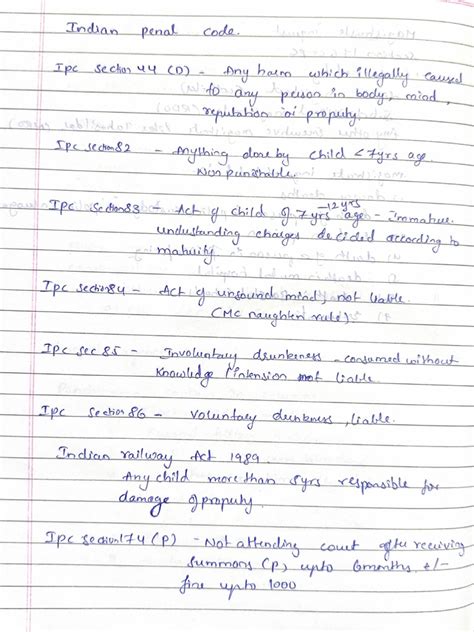 Indian penal code.
Ipc section 44 (D) - Any harm which illegally caused
to any person in body, mind,
reputation or property
Ipc section 82 - Anything done by child < 7yrs age.
Non punishable.
Ipc section 83 - Act of child of 7yrs -12yrs age - Immature.
understanding charges decided according to
maturity
Ipc section 84 - Act of unsound mind, not liable.
(MC naughten rule)
Ipc sec 85 - Involuntary drunkeness - consumed without
knowledge / intension not liable.
Ipc section 86 - Voluntary drunkness, liable.
Indian railway Act 1989.
Any child more than 5yrs responsible for
damage of property.
Ipc section 174 (P) - Not attending court after receiving
summons (P) upto 6months +/-
fine upto 1000